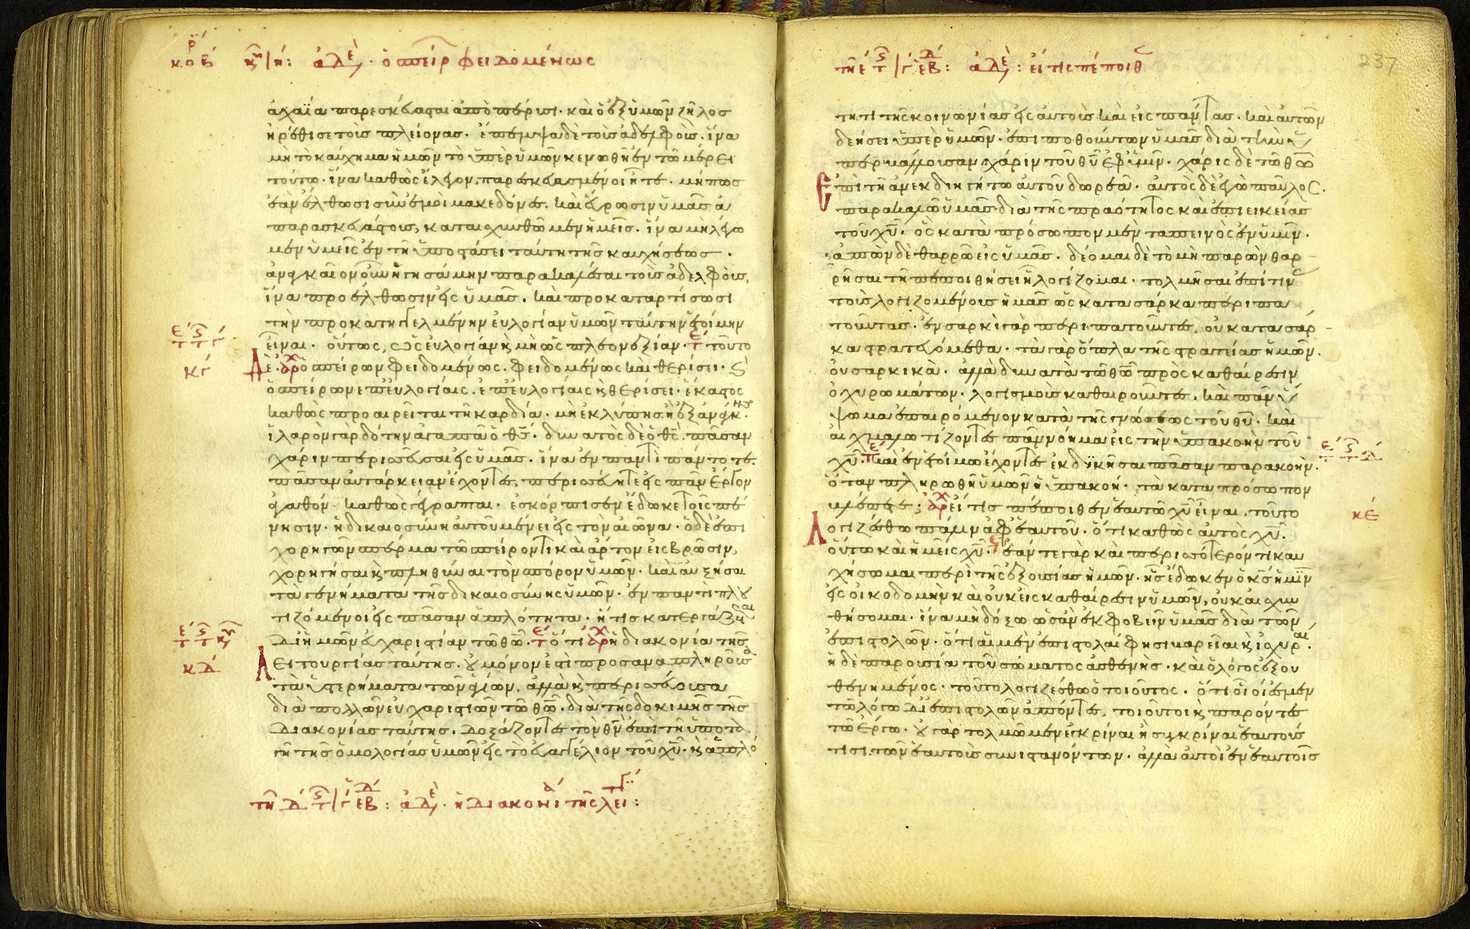 ρκε΄ κη΄ | η΄: ἀδε· ὁ σπείρ φειδομένως
ἀχαΐα παρεσκεύασται ἀπὸ πέρυσι· καὶ ὁ ἐξ ὑμῶν ζῆλος
ἠρέθισε τοὺς πλείονας· ἔπεμψα δὲ τοὺς ἀδελφοὺς· ἵνα
μὴ τὸ καύχημα ἡμῶν τὸ ὑπὲρ ὑμῶν κενωθῆ ἐν τῶ μέρει
τούτω· ἵνα καθὼς ἔλεγον, παρεσκευασμένοι ἦτε· μήπως
ἐὰν ἔλθωσι σὺν ἐμοὶ μακεδόνες, καὶ εὕρωσιν ὑμᾶς ἀ
παρασκευάστους, καταισχυνθῶμεν ἡμεῖς· ἵνα μὴ λέγω
μεν ὑμεῖς ἐν τῆ ὑποστάσει ταύτη τῆς καυχήσεως·
ἀναγκαῖον οὖν ἡγησάμην παρακαλέσαι τοὺς ἀδελφοὺς,
ἵνα προέλθωσιν εἰς ὑμᾶς· καὶ προκαταρτίσωσι
τὴν προκατηγγελμένην εὐλογίαν ὑμῶν ταύτην ἑτοίμην
εἶναι· οὕτως, ὡς εὐλογίαν κ μὴ ὡς πλεονεξίαν· τε τοῦτο
δὲ· αρχ ὁ σπείρων φειδομένως· φειδομένως καὶ θερίσει· κ
ὁ σπείρων ἐπ' εὐλογίαις· ἐπ' εὐλογίαις κ θερίσει· ἕκαστος
καθὼς προαιρεῖται τῆ καρδία· μὴ ἐκ λύπης ἢ ἐξ ἀνάγκης·
ἱλαρὸν γὰρ δότην ἀγαπᾶ ὁ θς· δυνατὸς δὲ ὁ θς· πᾶσαν
χάριν περισσεῦσαι εἰς ὑμᾶς· ἵνα ἐν παντὶ πάντοτε
πᾶσαν αὐτάρκειαν ἔχοντες, περισσεύητε εἰς πᾶν ἔργον
ἀγαθόν· καθὼς γέγραπται· ἐσκόρπισεν ἔδωκε τοῖς πέ
νησιν· ἡ δικαιοσύνη αὐτοῦ μένει εἰς τὸν αἰῶνα· ὁ δὲ ἐπι
χορηγῶν σπέρμα τῶ σπείροντι καὶ ἄρτον εἰς βρῶσιν,
χορηγήσαι κ πληθύναι τὸν σπόρον ὑμῶν· καὶ αὐξήσαι
τὰ γενήματα τῆς δικαιοσύνης ὑμῶν· ἐν παντὶ πλου
τιζόμενοι εἰς πᾶσαν ἁπλότητα· ἥτις κατεργάζεται
δι' ἡμῶν εὐχαριστίαν τῶ θῶ· τε ὅτι αρχ ἡ διακονία τῆς
λειτουργίας ταύτης· οὐ μόνον ἐστὶ προσαναπληροῦσα
τὰ ὑστερήματα τῶν ἁγίων, ἀλλὰ κ περισσεύουσα
διὰ πολλῶν εὐχαριστιῶν τῶ θῶ· διὰ τῆς δοκιμῆς τῆς
διακονίας ταύτης· δοξάζοντες τὸν θν ἐπὶ τῆ ὑποτα
γῆ τῆς ὁμολογίας ὑμῶν εἰς τὸ εὐαγγέλιον τοῦ χυ· κ ἁπλό
κγ΄
κδ΄
τῆ δ΄ : ἀδε· ἡ διακονί τῆς λει:
237
τῆ ε΄ : ἀδε: εἴ τις πέποιθ
τητι τῆς κοινωνίας εἰς αὐτοὺς καὶ εἰς πάντας· καὶ αὐτῶν
δεήσει ὑπὲρ ὑμῶν· ἐπιποθούντων ὑμᾶς διὰ τὴν ὑ
περβάλλουσαν χάριν τοῦ θυ ἐφ' ὑμῖν· χάρις δὲ τῶ θῶ
ἐπὶ τῆ ἀνεκδιηγήτω αὐτοῦ δωρεᾶ· αὐτὸς δὲ ἐγὼ παῦλος·
παρακαλῶ ὑμᾶς διὰ τῆς πραότητος καὶ ἐπιεικείας
τοῦ χυ· ὃς κατὰ πρόσωπον μὲν ταπεινὸς ἐν ὑμῖν·
ἀπὼν δὲ θαρρῶ εἰς ὑμᾶς· δέομαι δὲ τὸ μὴ παρὼν θαρ
ρῆσαι τῆ πεποιθήσει ἧ λογίζομαι· τολμῆσαι ἐπί τινας
τοὺς λογιζομένους ἡμᾶς ὡς κατὰ σάρκα περιπα
τοῦντας· ἐν σαρκὶ γὰρ περιπατοῦντες, οὐ κατὰ σάρ
κα στρατευόμεθα· τὰ γὰρ ὅπλα τῆς στρατείας ἡμῶν·
οὐ σαρκικὰ· ἀλλὰ δυνατὰ τῶ θῶ πρὸς καθαίρεσιν
ὀχυρωμάτων· λογισμοὺς καθαιροῦντες· καὶ πᾶν ὕ
ψωμα ἐπαιρόμενον κατὰ τῆς γνώσεως τοῦ θυ· καὶ
αἰχμαλωτίζοντες πᾶν νόημα εἰς τὴν ὑπακοὴν τοῦ
χυ· καὶ ἐν ἑτοίμω ἔχοντες ἐκδικῆσαι πᾶσαν παρακοὴν·
ὅταν πληρωθῆ ὑμῶν ἡ ὑπακοή· τὰ κατὰ πρόσωπον
βλέπετε; αρχ εἴ τις πέποιθεν ἑαυτῶ χυ εἶναι· τοῦτο
λογιζέσθω πάλιν ἀφ' ἑαυτοῦ· ὅτι καθὼς αὐτὸς χυ·
οὕτω καὶ ἡμεῖς χυ· ἐάν τε γὰρ καὶ περισσότερόν τι καυ
χήσωμαι περὶ τῆς ἐξουσίας ἡμῶν· ἧς ἔδωκεν ὁ κς ἡμῖν
εἰς οἰκοδομὴν καὶ οὐκ εἰς καθαίρεσιν ὑμῶν, οὐκ αἰσχυν
θήσομαι· ἵνα μὴ δόξω ὡς ἂν ἐκφοβεῖν ὑμᾶς διὰ τῶν
ἐπιστολῶν· ὅτι αἱ μὲν ἐπιστολαὶ φησὶ βαρεῖαι κ ἰσχυραί·
ἡ δὲ παρουσία τοῦ σώματος ἀσθενὴς· καὶ ὁ λόγος ἐξου
θενημένος· τοῦτο λογιζέσθω ὁ τοιοῦτος· ὅτι οἷοί ἐσμεν
τῶ λόγω δι' ἐπιστολῶν ἀπόντες, τοιοῦτοι κ παρόντες
τῶ ἔργω· οὐ γὰρ τολμῶμεν ἐγκρῖναι ἢ συγκρῖναι ἑαυτούς
τισι τῶν ἑαυτοὺς συνιστανόντων· ἀλλὰ αὐτοὶ ἐν ἑαυτοῖς
κε΄